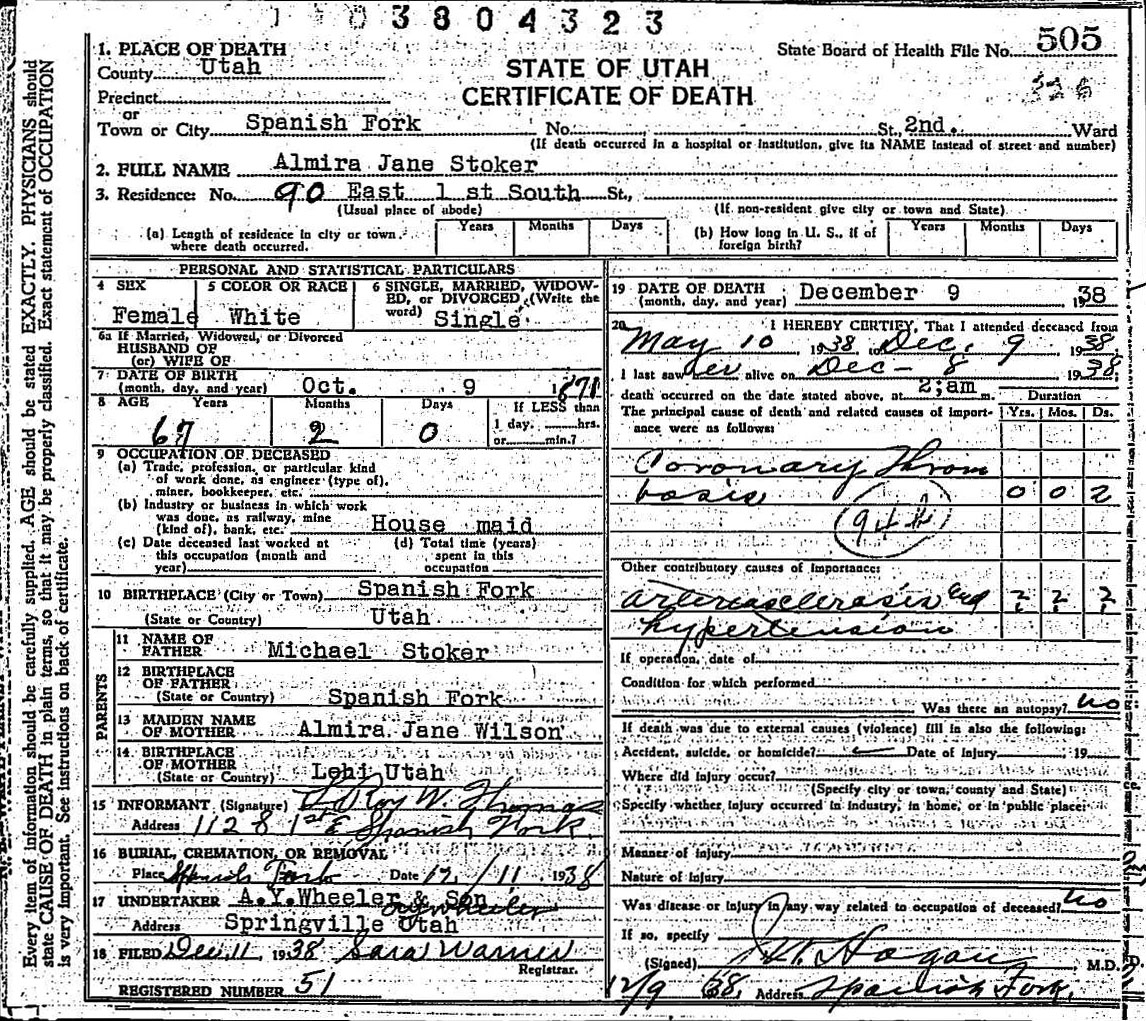 3804323
State Board of Health File No. 505
326
1. PLACE OF DEATH
County Utah
STATE OF UTAH
CERTIFICATE OF DEATH
Precinct
or
Town or City Spanish Fork No. St., 2nd. Ward
(If death occurred in a hospital or institution, give its NAME instead of street and number)
2. FULL NAME Almira Jane Stoker
3. Residence: No. 90 East 1 st South St.,
(Usual place of abode) (If non-resident give city or town and State)
(a) Length of residence in city or town where death occurred. Years Months Days (b) How long in U. S., if of foreign birth? Years Months Days
PERSONAL AND STATISTICAL PARTICULARS
4 SEX Female
5 COLOR OR RACE White
6 SINGLE, MARRIED, WIDOW-
ED, or DIVORCED (Write the
word) Single
6a If Married, Widowed, or Divorced
HUSBAND OF
(or) WIFE OF
7 DATE OF BIRTH
(month, day, and year) Oct. 9 1871
8 AGE Years Months Days If LESS than
67 2 0 1 day, hrs.
or min.?
9 OCCUPATION OF DECEASED
(a) Trade, profession, or particular kind
of work done, as engineer (type of),
miner, bookkeeper, etc.
(b) Industry or business in which work
was done, as railway, mine
(kind of), bank, etc. House maid
(c) Date deceased last worked at
this occupation (month and
year)
(d) Total time (years)
spent in this
occupation
10 BIRTHPLACE (City or Town) Spanish Fork
(State or Country) Utah
PARENTS
11 NAME OF
FATHER Michael Stoker
12 BIRTHPLACE
OF FATHER
(State or Country) Spanish Fork
13 MAIDEN NAME
OF MOTHER Almira Jane Wilson
14 BIRTHPLACE
OF MOTHER
(State or Country) Lehi Utah
15 INFORMANT (Signature) LeRoy W. Thomas
Address 1128 1st E Spanish Fork.
16 BURIAL, CREMATION, OR REMOVAL
Place Spanish Fork Date 12/11 1938
17 UNDERTAKER A.Y.Wheeler & Son
Address Springville Utah
18 FILED Dec. 11, 1938 Sara Warner
Registrar.
REGISTERED NUMBER 51
19 DATE OF DEATH
(month, day, and year) December 9 1938
20 I HEREBY CERTIFY, That I attended deceased from
May 10 1938 to Dec. 9 1938
I last saw her alive on Dec- 8 1938
death occurred on the date stated above, at 2;am m.
The principal cause of death and related causes of import-
ance were as follows:
Duration
Yrs. Mos. Ds.
Coronary Throm
bosis 0 0 2
Other contributory causes of importance:
arteriosclerosis and ? ? ?
hypertension
If operation, date of
Condition for which performed
Was there an autopsy? no
If death was due to external causes (violence) fill in also the following:
Accident, suicide, or homicide? Date of injury 19
Where did injury occur?
(Specify city or town, county and State)
Specify whether injury occurred in industry, in home, or in public place:
Manner of injury
Nature of injury
Was disease or injury in any way related to occupation of deceased? no
If so, specify
(Signed) Hagan M.D.
12/9 38, Address Spanish Fork.
Every item of information should be carefully supplied. AGE should be stated EXACTLY. PHYSICIANS should
state CAUSE OF DEATH in plain terms, so that it may be properly classified. Exact statement of OCCUPATION
is very important. See instructions on back of certificate.